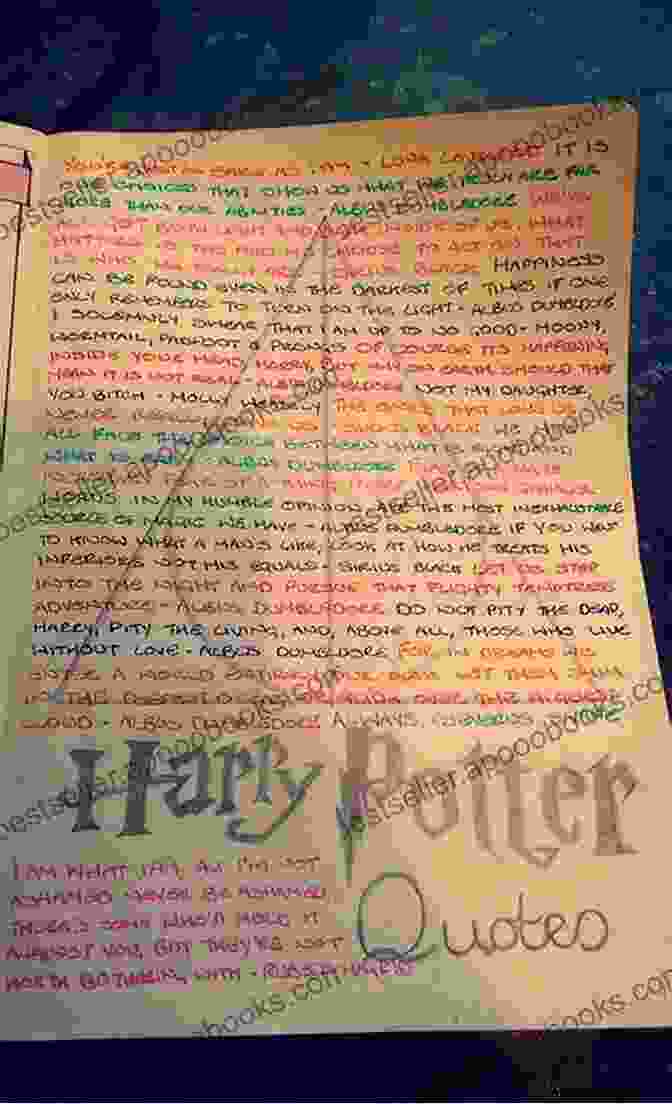 AS SANE AS I AM - LUNA LOVEGOOD IT IS
OUR CHOICES THAT SHOW US WHAT WE TRULY ARE FAR
MORE THAN OUR ABILITIES - ALBUS DUMBLEDORE WE'VE
ALL GOT BOTH LIGHT AND DARK INSIDE OF US. WHAT
MATTERS IS THE PART WE CHOOSE TO ACT ON THAT
IS WHO WE REALLY ARE - SIRIUS BLACK HAPPINESS
CAN BE FOUND EVEN IN THE DARKEST OF TIMES IF ONE
ONLY REMEMBERS TO TURN ON THE LIGHT - ALBUS DUMBLEDORE
I SOLEMNLY SWEAR THAT I AM UP TO NO GOOD - MOONY,
WORMTAIL, PADFOOT & PRONGS OF COURSE ITS HAPPENING
INSIDE YOUR HEAD HARRY, BUT WHY ON EARTH SHOULD THAT
MEAN IT IS NOT REAL - ALBUS DUMBLEDORE NOT MY DAUGHTER,
YOU BITCH - MOLLY WEASLEY THE ONES THAT LOVE US
NEVER REALLY LEAVE US - SIRIUS BLACK WE MUST
ALL FACE THE CHOICE BETWEEN WHAT IS RIGHT AND
WHAT IS EASY - ALBUS DUMBLEDORE
FEAR OF A NAME
WORDS IN MY HUMBLE OPINION, ARE THE MOST INEXHAUSTABLE
SOURCE OF MAGIC WE HAVE - ALBUS DUMBLEDORE IF YOU WANT
TO KNOW WHAT A MAN'S LIKE, LOOK AT HOW HE TREATS HIS
INFERIORS NOT HIS EQUALS - SIRIUS BLACK LET US STEP
INTO THE NIGHT AND PURSUE THAT FLIGHTY TEMPTRESS
ADVENTURE - ALBUS DUMBLEDORE DO NOT PITY THE DEAD,
HARRY, PITY THE LIVING, AND, ABOVE ALL, THOSE WHO LIVE
WITHOUT LOVE - ALBUS DUMBLEDORE FOR IN DREAMS WE
ENTER A WORLD ENTIRELY OUR OWN LET THEM SWIM
IN THE DEEPEST OCEAN OR GLIDE OVER THE HIGHEST
CLOUD - ALBUS DUMBLEDORE ALWAYS
Harry Potter
Quotes
I AM WHAT I AM, AN' I'M NOT
ASHAMED NEVER BE ASHAMED
THERE'S SOME WHO'LL HOLD IT
AGAINST YOU, BUT THEY'RE NOT
WORTH BOTHERING WITH -
bestseller.apooobooks.com